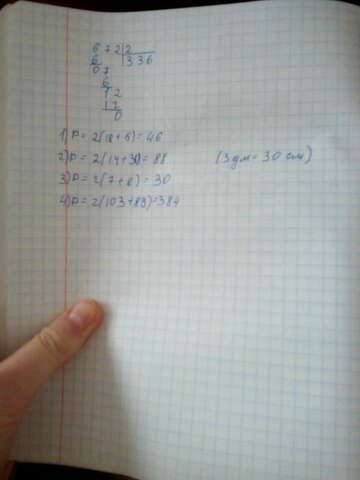 672|2
6 336
07
6
12
12
0
1) P = 2(18+5) = 46
2) P = 2(14+30) = 88 (3 дм = 30 см)
3) P = 2(7+8) = 30
4) P = 2(103+89) = 384